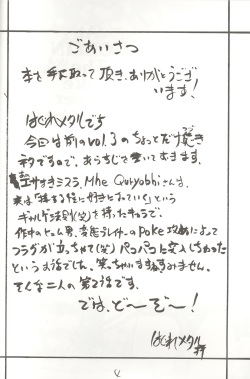 ごあいさつ
本を手に取って頂き、ありがとうござ
います!
はぐれメタルです
今回は前のvol.3のちょっとだけ続き
ネタですので、あらすじを書いておきます。
ミスラ、Mhe Quryobhiさんは、
実は「接する程に好きになっていく」という
ギャルゲ法則(笑)を持ったキャラで、
作中のヒュム男、変態プレイヤーのPoke攻めによって
フラグが立っちゃって(笑)
というお話でした。笑っちゃいますねすみません。
そんな二人の第2話です。
では、ど〜ぞ〜!
はぐれメタル拝